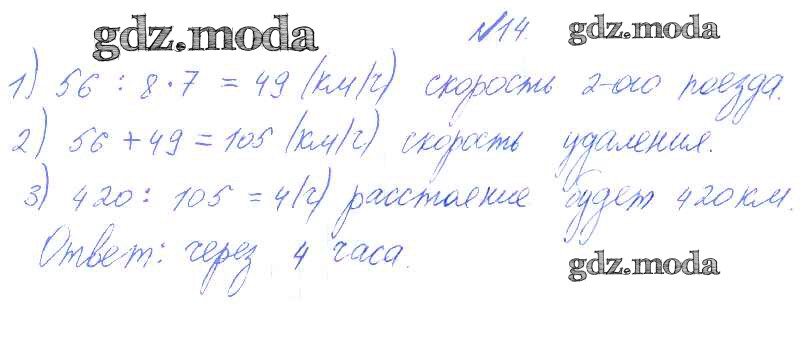 gdz.moda №14. gdz.moda
1) 56 : 8 · 7 = 49 (км/ч) скорость 2-ого поезда.
2) 56 + 49 = 105 (км/ч) скорость удаления.
3) 420 : 105 = 4 (ч) расстояние будет 420 км.
Ответ: через 4 часа.
gdz.moda